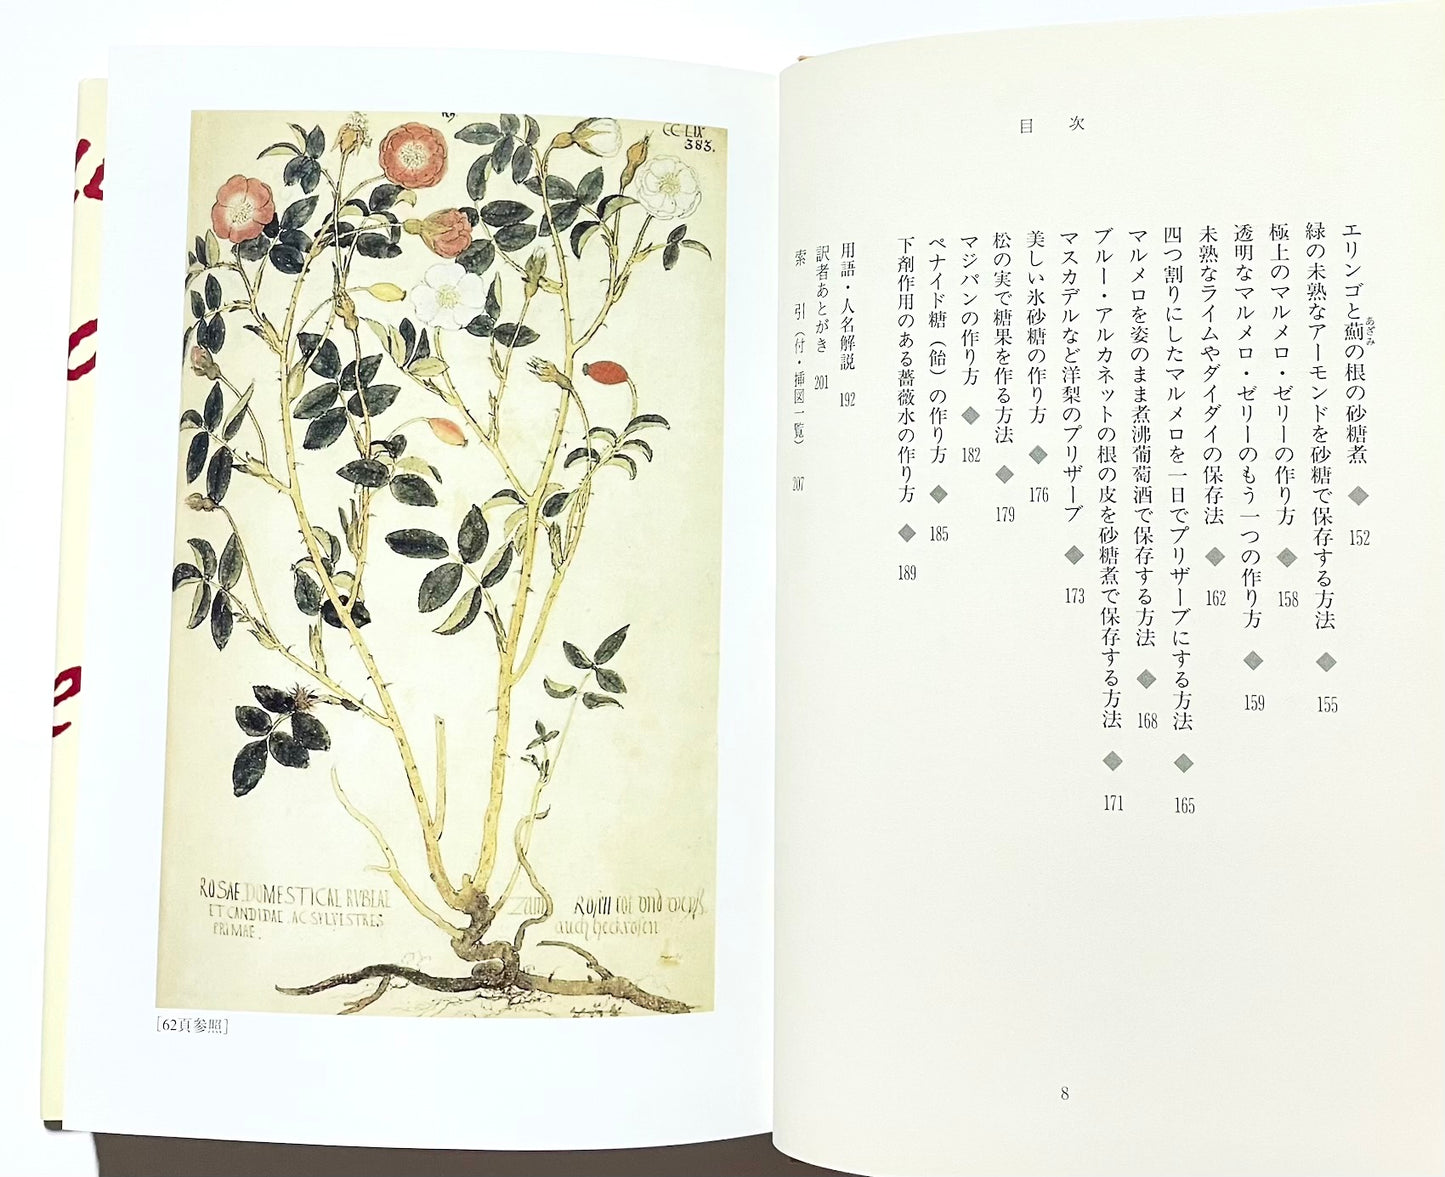 目　次
エリンゴと薊の根の砂糖煮 ◆ 152
あざみ
緑の未熟なアーモンドを砂糖で保存する方法 ◆ 155
極上のマルメロ・ゼリーの作り方 ◆ 158
透明なマルメロ・ゼリーのもう一つの作り方 ◆ 159
未熟なライムやダイダイの保存法 ◆ 162
四つ割りにしたマルメロを一日でプリザーブにする方法 ◆ 165
マルメロを姿のまま煮沸葡萄酒で保存する方法 ◆ 168
ブルー・アルカネットの根の皮を砂糖煮で保存する方法 ◆ 171
マスカデルなど洋梨のプリザーブ ◆ 173
美しい氷砂糖の作り方 ◆ 176
松の実で糖果を作る方法 ◆ 179
マジパンの作り方 ◆ 182
ペナイド糖（飴）の作り方 ◆ 185
下剤作用のある薔薇水の作り方 ◆ 189
用語・人名解説 192
訳者あとがき 201
索　引（付・挿図一覧） 207
8
CCLIX
383.
ROSAE DOMESTICAE RVBEAE
ET CANDIDAE. AC SYLVESTRES
PRIMAE.
auch heckrosen
［62頁参照］